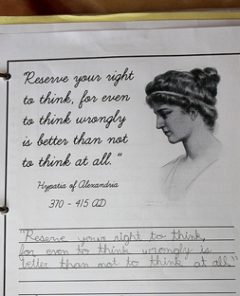 Reserve your right
to think, for even
to think wrongly
is better than not
to think at all."
Hypatia of Alexandria
370 - 415 AD
"Reserve your right to think,
for even to think wrongly is
better than not to think at all."